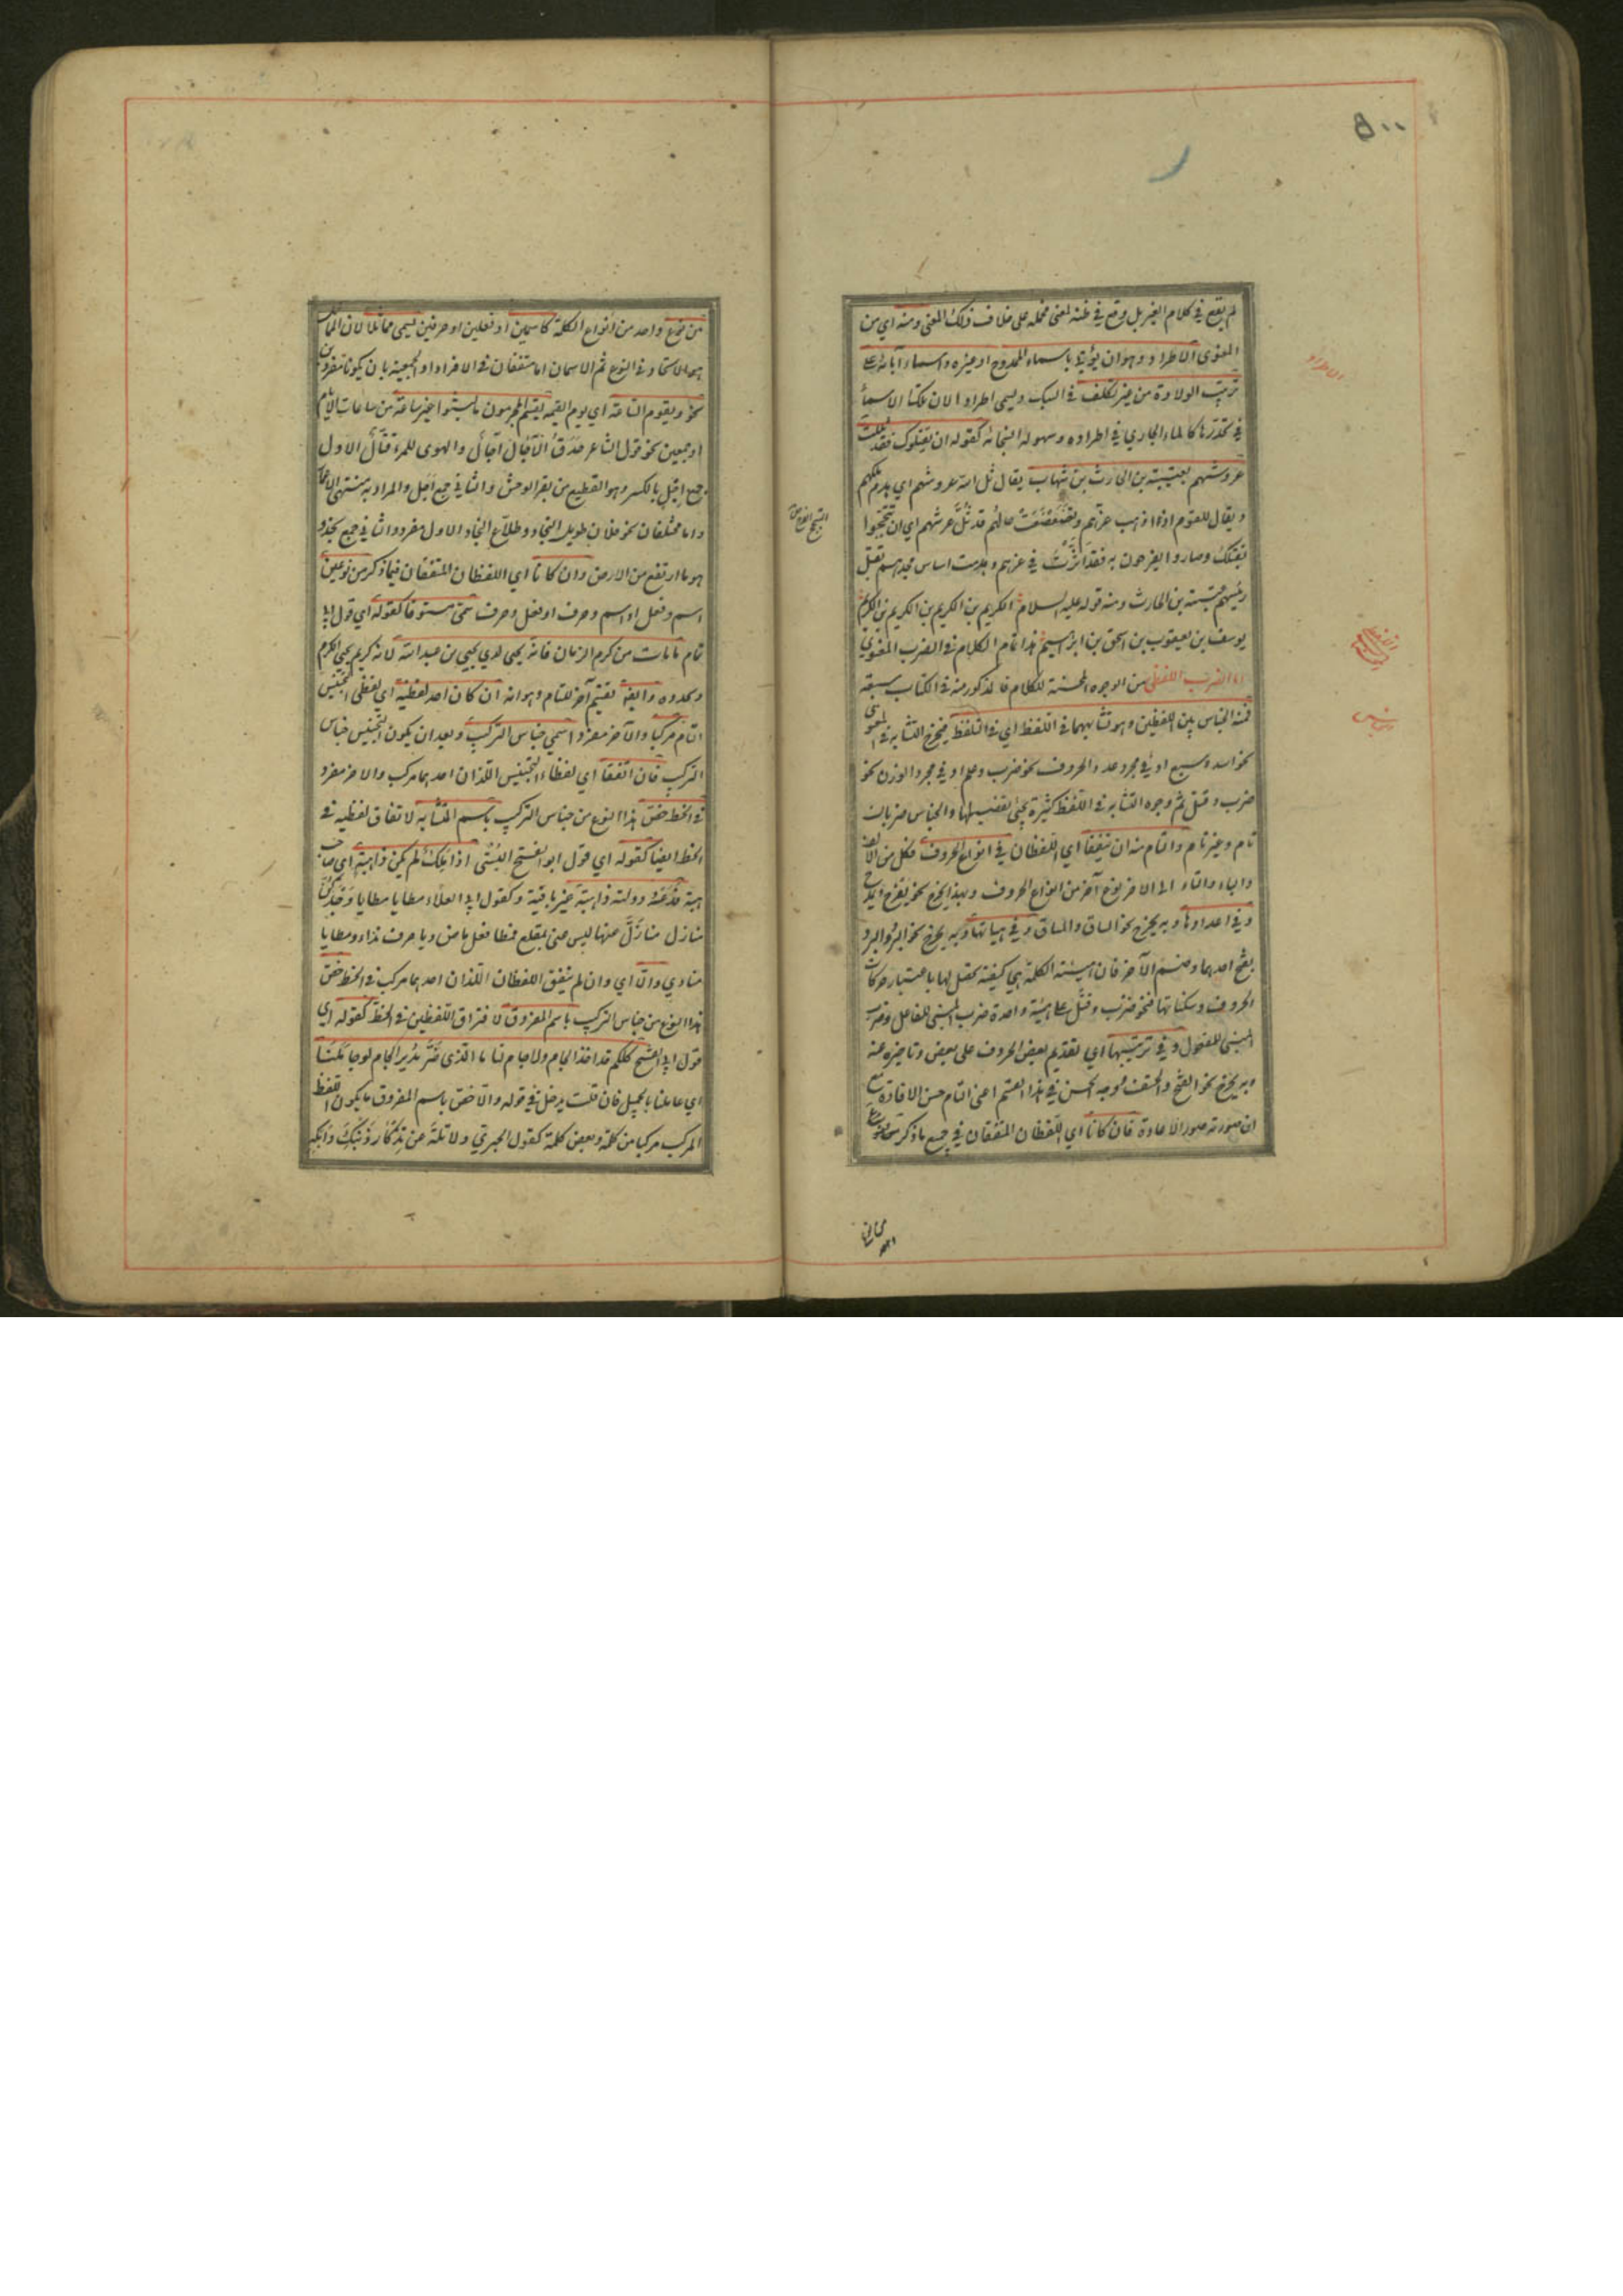 ٥٠٠
لم يقع في كلام الغير بل وقع في ظنه لمعنى فحمله على خلاف ذلك المعنى ومنه اي من
المعنوى الاطراد وهو ان يؤتى باسماء الممدوح او غيره واسماء آبائه على
ترتيب الولادة من غير تكلف في السبك ويسمى اطرادا لان تلك الاسماء
في تحدرها كالماء الجاري في اطراده وسهولة انسجامه كقوله ان يقتلوك فقد ثللت
عروشهم بعتيبة بن الحارث بن شهاب يقال ثل الله عروشهم اي هدم ملكهم
ويقال للقوم اذا ذهب عزهم وتضعضعت حالهم قد ثل عرشهم اي ان تبجحوا
بقتلك وصاروا يفرحون به فقد اثرت في عزهم وهدمت اساس مجدهم بقتل
رئيسهم عتيبة بن الحارث ومنه قوله عليه السلام الكريم بن الكريم بن الكريم بن الكريم
يوسف بن يعقوب بن اسحق بن ابرهيم هذا تمام الكلام في الضرب المعنوى
اما الضرب اللفظي من الوجوه المحسنة للكلام فالمذكور منه في الكتاب سبعة
فمنه الجناس بين اللفظين وهو تشابههما في اللفظ اي في التلفظ فيخرج التشابه في المعنوى
نحو اسد وسبع او في مجرد عدد الحروف نحو ضرب وعلم او في مجرد الوزن نحو
ضرب وقتل ثم وجوه التشابه في اللفظ كثيرة يجئ تفصيلها والجناس ضربان
تام وغير تام والتام منه ان يتفقا اي اللفظان في انواع الحروف فكل من الالف
والباء والتاء الى الاخر نوع آخر من انواع الحروف وبهذا يخرج نحو يفرح ويمرح
وفي اعدادها وبه يخرج نحو الساق والمساق وفي هيأتها وبه يخرج نحو البرد والبرد
بفتح احدهما وضم الآخر فان هيئة الكلمة هي كيفية تحصل لها باعتبار حركات
الحروف وسكناتها فنحو ضرب وقتل على هيئة واحدة ضرب المبنى للفاعل وضرب
المبنى للمفعول وفي ترتيبها اي تقديم بعض الحروف على بعض وتاخيره عنه
وبه يخرج نحو الفتح والحتف ووجه الحسن في هذا القسم اعنى التام حسن الافادة مع
ان صورته صورة الاعادة فان كانا اي اللفظان المتفقان في جميع ما ذكر من نوع
الاطراد
الجناس
من نوع واحد من انواع الكلمة كاسمين او فعلين او حرفين يسمى مماثلا لان التماثل
هو الاتحاد في النوع ثم الاسمان اما متفقان في الافراد او الجمعية بان يكونا مفردين
نحو ويقوم الساعة اي يوم القيمة يقسم المجرمون ما لبثوا غير ساعة من ساعات الايام
او جمعين نحو قول الشاعر حدق الآجال آجال والهوى للمرء قتال الاول
جمع اجل بالكسر وهو القطيع من بقر الوحش والثاني جمع اجل والمراد به منتهى الاعمار
واما مختلفان نحو فلان طويل النجاد وطلاع النجاد الاول مفرد والثاني جمع نجد و
هو ما ارتفع من الارض وان كانا اي اللفظان المتفقان فيما ذكر من نوعين
اسم وفعل او اسم وحرف او فعل وحرف سمى مستوفا كقوله اي قول ابى
تمام ما مات من كرم الزمان فانه يحيى لدى يحيى بن عبد الله لانه كريم يحيى الكرم
ويجدده وايضا تقسيم آخر للتام وهو انه ان كان احد لفظيه اي لفظى التجنيس
التام مركبا والآخر مفردا سمى جناس التركيب وبعد ان يكون التجنيس جناس
التركيب فان اتفقا اي لفظا التجنيس اللذان احدهما مركب والاخر مفرد
في الخط خص هذا النوع من جناس التركيب باسم المتشابه لاتفاق لفظيه في
الخط ايضا كقوله اي قول ابو الفتح البستى اذا ملك لم يكن ذا هبة اي صاحب
هبة فدعه دولته ذاهبة غير باقية وكقول ابى العلاء مطايا مطايا وجدكن
منازل منازل عنها ليس عنى بمقلع فمطا فعل ماض ويا حرف نداء ومطايا
منادى والا اي وان لم يتفق اللفظان اللذان احدهما مركب في الخط خص
هذا النوع من جناس التركيب باسم المفروق لافتراق اللفظين في الخط كقوله اي
قول ابى الفتح كلكم قد اخذ الجام ولا جام لنا ما الذى ضر مدير الجام لو جاملنا
اي عاملنا بالجميل فان قلت يدخل في قوله والا خص باسم المفروق ما يكون اللفظ
المركب مركبا من كلمة وبعض كلمة كقول الحريري ولا تله عن تذكار ذنبك وابكه